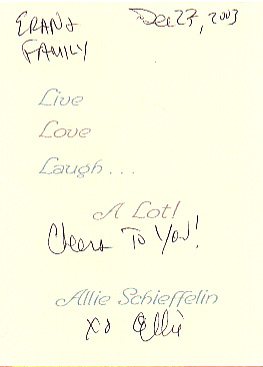 ERAN &
FAMILY
Dec 27, 2003
Live
Love
Laugh...
A Lot!
Cheers To You!
Allie Schieffelin
xo Allie